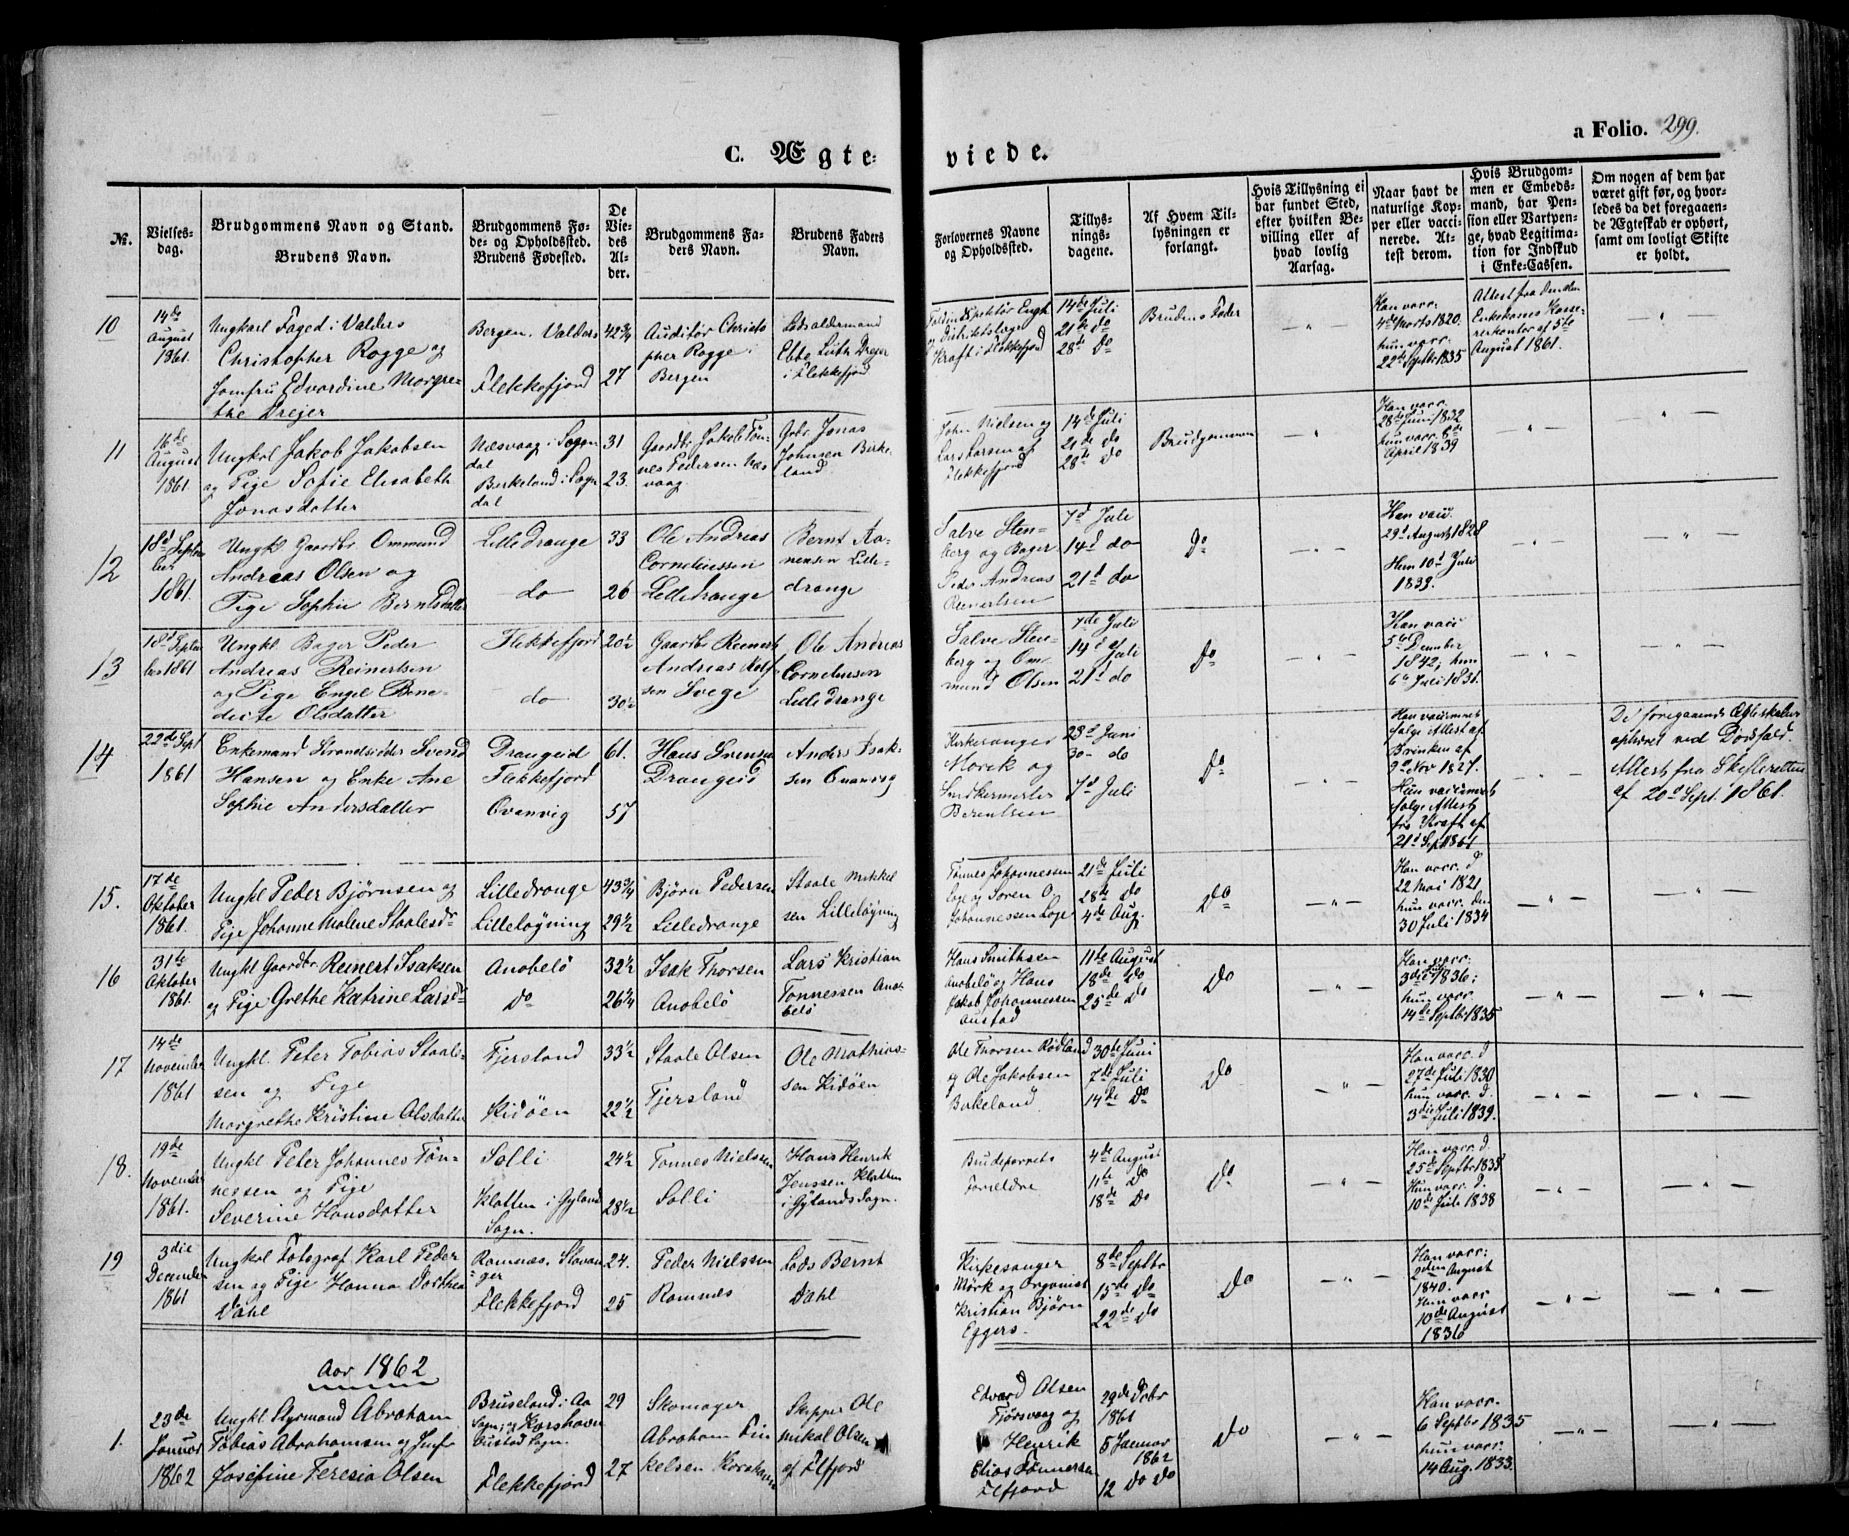 C. Ægte-
viede.
a Folio. 299.
№.
Vielses-
dag.
Brudgommens Navn og Stand.
Brudens Navn.
Brudgommens Fø-
de- og Opholdssted.
Brudens Fødested.
De
Vie-
des
Al-
der.
Brudgommens Fa-
ders Navn.
Brudens Faders
Navn.
Forlovernes Navne
og Opholdssted.
Tillys-
nings-
dagene.
Af Hvem Til-
lysningen er
forlangt.
Hvis Tillysning ei
har fundet Sted,
efter hvilken Be-
villing eller af
hvad lovlig
Aarsag.
Naar havt de
naturlige Kop-
per eller vacci-
nerede. At-
test derom.
Hvis Brudgom-
men er Embeds-
mand, har Pen-
sion eller Vartpen-
ge, hvad Legitima-
tion for Indskud
i Enke-Cassen.
Om nogen af dem har
været gift før, og hvor-
ledes da det foregaaen-
de Ægteskab er ophørt,
samt om lovligt Skifte
er holdt.
10
14de
August
1861.
Ungkarl Foged i Valders
Christopher Rogge og
Jomfru Edvardine Margre-
the Drejer
Bergen. Valders
Flekkefjord
42 3/4
27
Auditør Christo
pher Rogge i
Bergen
Lodsaldermand
Ebbe Luth Drejer
i Flekkefjord
Kraft i Flekkefjord
14de Juli
21de do
28de do
Brudens Fader
Han vacc.
4de Marts 1820.
hun vacc.
22de Septbr 1835
Attest fra den alm
Enkekasses Kasse-
rerkontor af 5te
August 1861.
11
16de
August
1861.
Ungkl Jakob Jakobsen
og Pige Sofie Elisabeth
Jonasdatter
Næsvaag i Sogn
dal
Birkeland i Sogn
dal
31
23.
Gaardbr Jakob Tøn-
nes Pedersen Næs
vaag
Grbr Jonas
Johnsen Birke-
land
John Nielsen og
Lars Larsen af
Flekkefjord
14de Juli
21de do
28de do
Brudgommen
Han vacc.
28de Juni 1832
hun vacc. 8de
April 1839
12
18d Septem
ber
1861.
Ungkl Gaardbr Ommund
Andreas Olsen og
Pige Sophie Berntsdatter
Lilledrange
do
33
26
Ole Andreas
Corneliussen
Lilledrange
Bernt Aa-
nensen Lille-
drange
Salve Sten-
berg og Bager
Peder Andreas
Reinertsen
7d Juli
14d do
21d do
Do
Han vacc.
29d August 1828
Hun 10d Juli
1839.
13
18d Septem
ber 1861
Ungkl Bager Peder
Andreas Reinertsen
og Pige Engel Bene-
dicte Olsdatter
Flekkefjord
do
20 1/2
30 1/2
Gaardbr Reinert
Andreas Rolf-
sen Svege
Ole Andreas
Corneliussen
Lilledrange
Salve Sten-
berg og Om-
mund Olsen
7de Juli
14d Juli
21d do
Do
Han vacc
5te December
1842; hun
6te Juli 1831.
14
22de Sept
1861
Enkemand Strandsidder Svend
Hansen og Enke Ane
Sophie Andersdatter
Drangeid
Flekkefjord
Qvanvig
61.
57
Hans Svensen
Drangeid
Anders Isak-
sen Qvanvig
Kirkesanger
Mörck og
Snedkermester
Berentsen
23d Juni
30 - do
7d Juli
Do
Han vaccineret
følge Attest af
Brinken af
9d Nov 1827.
Hun vaccineret
følge Attest
fra Kraft af
21d Sept 1861
De foregaaende Ægteskaber
ophævet ved Dødsfald.
Attest fra Skifteretten
af 20d Sept. 1861.
15.
17de
Oktober
1861.
Ungkl Peder Bjørnsen og
Pige Johanne Malene Staalesdr
Lilledrange
Lilleløgning
43 3/4
29 1/2
Bjørn Pedersen
Lilledrange
Staale Mikkel
sen Lilleløgning
Tønnes Johannessen
Loge og Søren O
Johannessen Loge
21de Juli
28de do
4de Aug.
Do
Han vacc. d
22 Mai 1821
hun vacc. den
30 Juli 1834
16
31te
Oktober
1861.
Ungkl Gaardbr Reinert Isaksen
og Pige Grethe Katrine Larsdr
Anabelø
Do
32 1/2
26 1/4
Isak Thorsen
Anabelø
Lars Kristian
Tønnessen Ana-
belø
Hans Smithsen
Anabelø og Hans
Jakob Johannessen
Austad
11te August
18de do
25de do
Do
Han vacc.
1836;
hun vacc.
14de Septbr 1835
17
14de
November
1861
Ungkl Peter Tobias Staale-
sen og Pige
Margrethe Kristine Olsdatter
Fjersland
Kidøen
33 1/2
22 1/2
Staale Olsen
Fjersland
Ole Mathias-
sen Kidøen
Ole Thorsen Rødland
og Ole Jakobsen
Birkeland
30de Juni
7de Juli
14de do
Do
Han vacc. d
27de Juli 1830
hun vacc. d.
3die Juli 1839.
18.
19de
November
1861.
Ungkl Peter Johannes Tøn-
nessen og Pige
Severine Hansdatter
Solli
Kløtten i Gyland
Sogn.
24 1/2
28 1/2
Tønnes Nielssen
Solli
Hans Henrik
Jenssen Kløtten
i Gylands Sogn.
Brudeparrets
Forældre
4de August
11te do
18de do
Do
Han vacc. d
25de Septbr 1838
Hun vacc. d.
10de Juli 1838
19
3die
December
1861
Ungkal Fotograf Karl Peder
sen og Pige Hanna Dorthea
Dahl
Ramnæs. Stavan-
ger
Flekkefjord
24.
25
Peder Nielssen
Ramnæs
Lods Bernt
Dahl
Kirkesanger
Mörk og Organist
Kristian Bjørn
Eggers.
8de Septbr
15de do
22de do
Do
Han vacc:
2den August
1840.
Hun vacc.
10de August
1836
Aar 1862
1.
23de
Januar
1862
Ungkl Styrmand Abraham
Tobias Abrahamsen og Jmfr
Josefine Teresia Olsen
Bruseland i Aa
Sogn, og Korshavn
Flekkefjord
29
27
Skomager
Abraham Fin
kelsen Korshavn
Skipper Ole
Mikal Olsen
af Elfjord
Edvard Olsen
Fjørsvaag og
Henrik
Elias Tønnessen
Elfjord
29de Decbr
1861
5 Januar
1862
12 do do
Do
Han vacc.
6 Septbr 1835
hun vacc.
14 Aug. 1833.